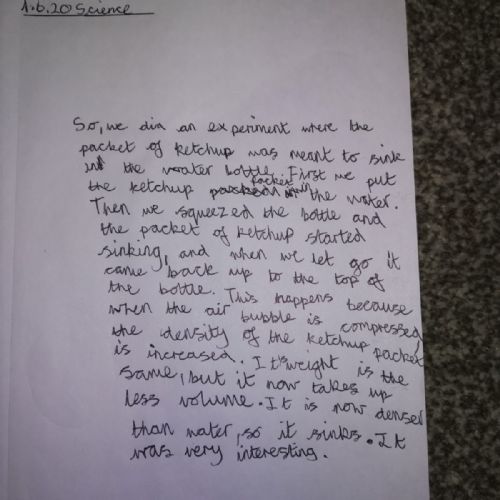 1.6.20 Science
So, we din an experiment where the
packet of ketchup was meant to sink
in the water bottle. First we put
the ketchup packet in the water.
Then we squeezed the bottle and
the packet of ketchup started
sinking, and when we let go it
came back up to the top of
the bottle. This happens because
when the air bubble is compressed,
the density of the ketchup packet
is increased. It's weight is the
same, but it now takes up
less volume. It is now denser
than water, so it sinks. It
was very interesting.